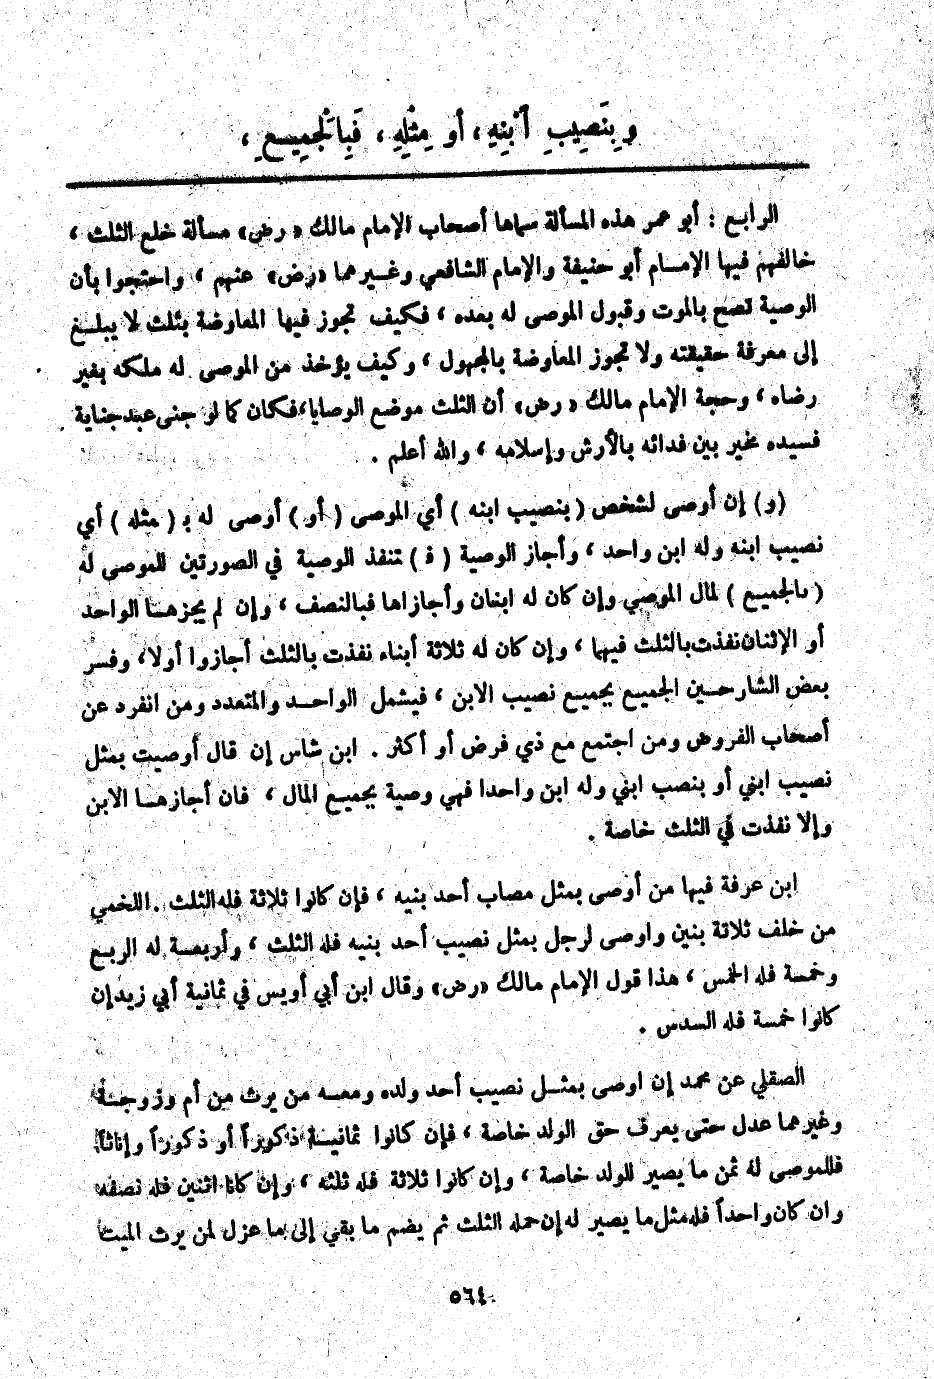 وبِنَصِيبِ ٱبْنِهِ ، أو مِثْلِهِ ، فَبِالْجَمِيعِ ،
الرابع : أبو عمر هذه المسألة سماها أصحاب الإمام مالك « رض» مسألة خلع الثلث ،
خالفهم فيها الإمـام أبو حنيفة والإمام الشافعي وغـيرهما «رض» عنهم ، واحتجوا بأن
الوصية تصح بالموت وقبول الموصى له بعده ، فكيف تجوز فيها المعاوضة بثلث لا يبلـغ
إلى معرفة حقيقته ولا تجوز المعاوضة بالمجهول ، وكيف يؤخذ من الموصى له ملكه بغير
رضاه ، وحجة الإمام مالك « رض» أن الثلث موضع الوصايا،فكان كما لو جنى عبد جناية
فسيده مخير بين فدائه بالأرش وإسلامه ، والله أعلم .
(و) إن أوصى لشخص ( بنصيب ابنه ) أي الموصى ( أو ) أوصى له بـ ( مثله ) أي
نصيب ابنه وله ابن واحد ، وأجاز الوصية ( فـ ) تنفذ الوصية في الصورتين للموصى له
( بالجميـع ) لمال الموصي وإن كان له ابنان وأجازاها فبالنصف ، وإن لم يجزهـا الواحد
أو الإثنان نفذت بالثلث فيهما ، وإن كان له ثلاثة أبناء نفذت بالثلث أجازوا أولا، وفسر
بعض الشارحـين الجميـع بجميـع نصيب الابن ، فيشمل الواحـد والمتعدد ومن انفرد عن
أصحاب الفروض ومن اجتمع مع ذي فرض أو أكثر . ابن شاس إن قال أوصيت بمثل
نصيب ابني أو بنصب ابني وله ابن واحدا فهي وصية بجميـع المال ، فان أجازهـا الابن
وإلا نفذت في الثلث خاصة .
ابن عرفة فيها من أوصى بمثل مصاب أحد بنيه ، فإن كانوا ثلاثة فله الثلث . اللخمي
من خلف ثلاثة بنين واوصى لرجل بمثل نصيب أحد بنيه فله الثلث ، وأربعـة له الربـع
وخمسة فله الخمس ، هذا قول الإمام مالك «رض» وقال ابن أبي أويس في ثمانية أبي زيد إن
كانوا خمسة فله السدس .
الصقلي عن محمد إن اوصى بمثـل نصيب أحد ولده ومعـه من يرث من أم وزوجـة
وغيرهما عدل حتى يعرف حق الولد خاصة ، فإن كانوا ثمانيـة ذكوراً أو ذكوراً وإناثاً
فللموصى له ثمن ما يصير للولد خاصة ، وإن كانوا ثلاثة فله ثلثه ، وإن كانا اثنين فله نصفه
وان كان واحداً فله مثل ما يصير له إن حمله الثلث ثم يضم ما بقي إلى ما عزل لمن يرث الميت
٥٦٤